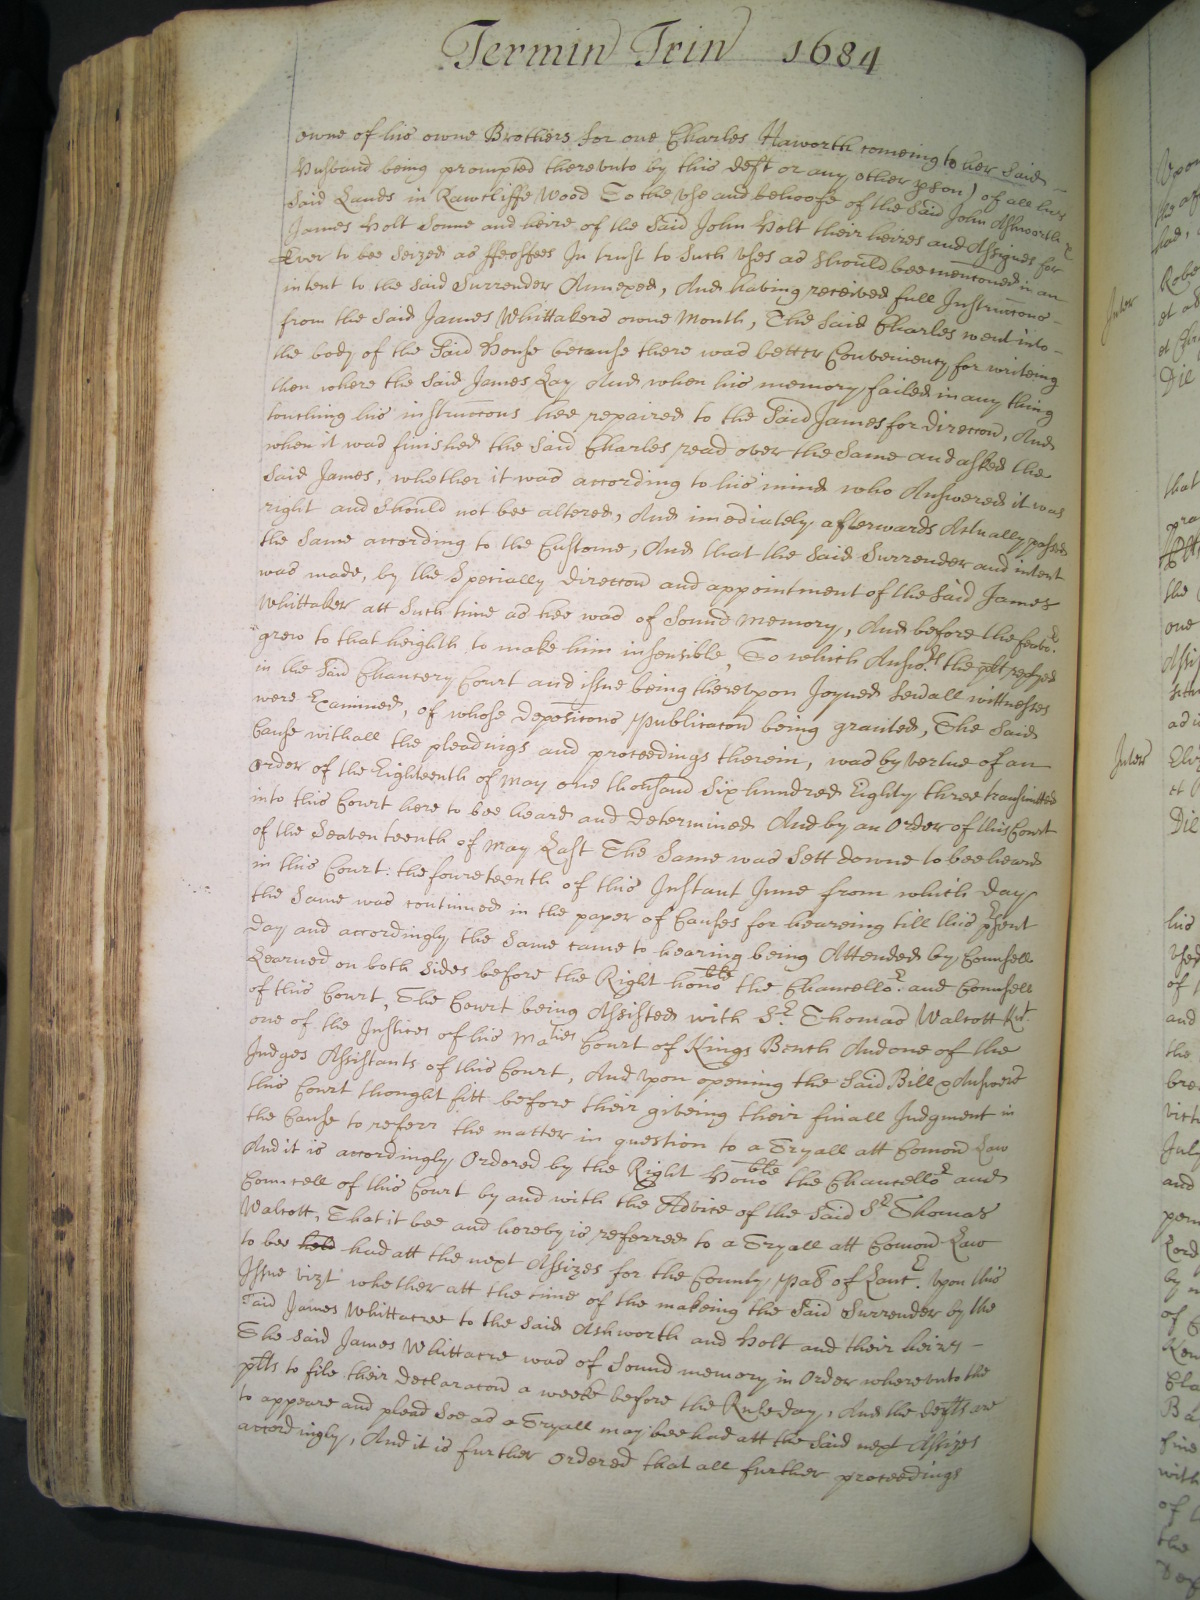 Termin Trin 1684
owne of his owne Brothers for one Charles Haworth comeing to her said
Husband being prompted therevnto by this deft or any other pson) of all his
said Lands in Rawcliffe Wood To the vse and behoofe of the said John Ashworth &
James Holt Sonne and heire of the said John Holt their heires and Assignes for
Ever to bee seized as ffeoffees In trust to such vses as should bee menconed in an
intent to the said Surrender Annexed, And having received full Instruccons
from the said James Whittakers owne Mouth, The said Charles went into
the body of the said House because there was better Conveniency for writeing
then where the said James Lay And when his memory failed in any thing
touching his instruccons hee repaired to the said James for direccon, And
when it was finished the said Charles read over the same and asked the
said James, whether it was according to his mind who Answered it was
right and should not bee altered, And imediately afterwards Actually passed
the same according to the Custome, And that the said Surrender and intent
was made, by the Specially direccon and appointment of the said James
Whittaker att such time as hee was of sound memory, And before the feavo.r
grew to that heighth to make him insensible, To which Answ.rs the plt replyed
in the said Chancery Court and issue being therevpon Joyned sevall wittnesses
were Examined, of whose deposicons publicacon being granted, The said
Cause withall the pleadings and proceedings therein, was by vertue of an
Order of the Eighteenth of May one thousand Six hundred Eighty three transmitted
into this Court here to bee heard and determined And by an Order of this Court
of the Seaventeenth of May Last The same was sett downe to bee heard
in this Court: the foureteenth of this Instant June from which day
the same was continued in the paper of Causes for heareing till this psent
day and accordingly the same came to hearing being Attended by Counsell
Learned on both sides before the Right hono.ble the Chancello.r and Counsell
of this Court, The Court being Assisted with S.r Thomas Walcott Kt.
one of the Justices of his Ma.ties Court of Kings Bench And one of the
Judges Assistants of this Court, And vpon opening the said Bill & Answere
this Court thought fitt before their giveing their finall Judgment in
the Cause to referr the matter in question to a Tryall att Comon Law
And it is accordingly Ordered by the Right Hono.ble the Chancello.r and
Councell of this Court by and with the Advice of the said S.r Thomas
Walcott, That it bee and hereby is referred to a Tryall att Comon Law
to bee held had att the next Assizes for the County pal of Lanc.r vpon this
Issue vizt whether att the time of the makeing the said Surrender by the
said James Whittacre to the said Ashworth and Holt and their heires
The said James Whittacre was of sound memory in Order wherevnto the
plts to file their declaracon a weeke before the Rule day, And the defts are
to appeare and plead soe as a Tryall may bee had att the said next Assizes
accordingly, And it is further Ordered that all further proceedings
Inter
Robe
et
Die
that
the
one
Inter
et
Die
his
vsed
of
and
the
July
and
Lord
by
of
with
of
the